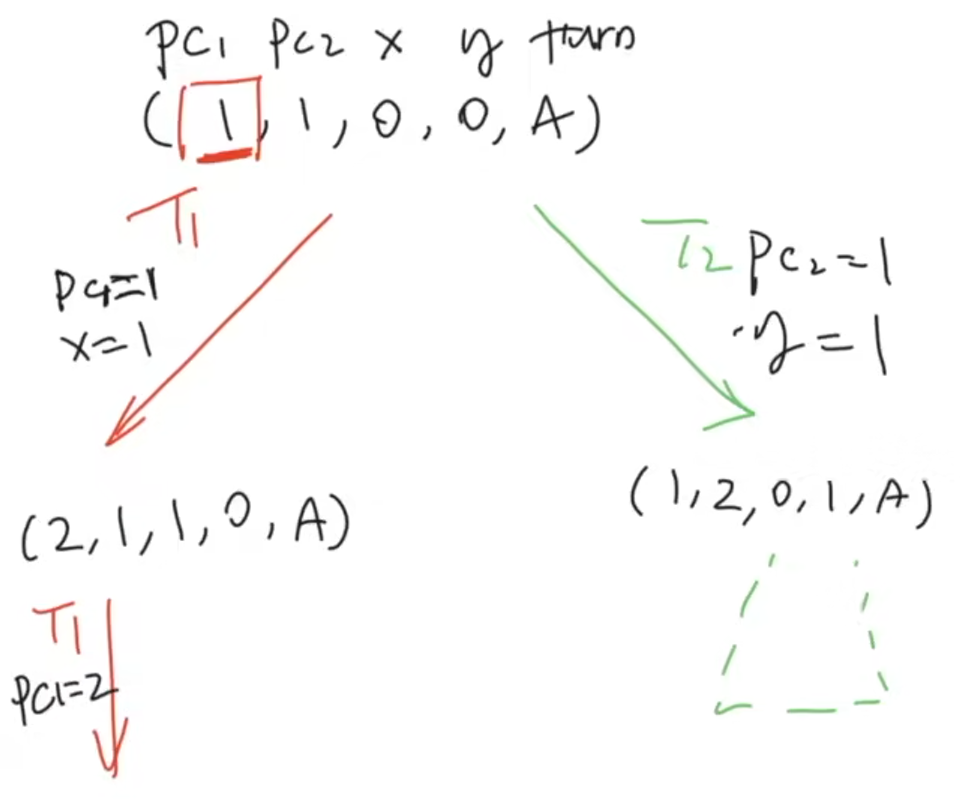 PC1 PC2 x y turn
(1, 1, 0, 0, A)
T1
PC1=1
x=1
T2 PC2=1
y=1
(2, 1, 1, 0, A)
(1, 2, 0, 1, A)
T1
PC1=2